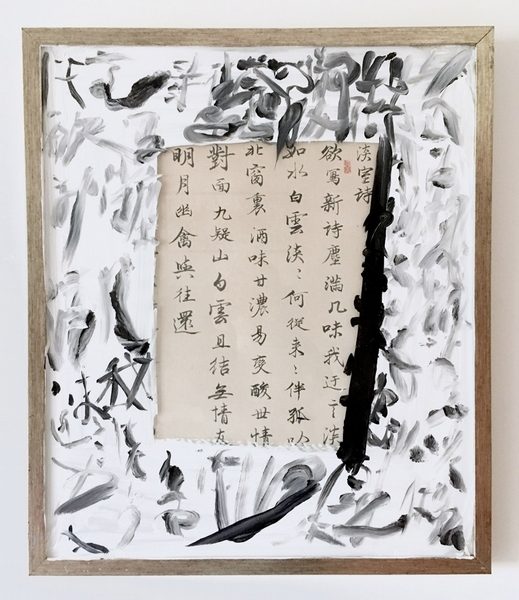 淡室詩
欲寫新詩塵滿几味我迂言淡
如水白雲淡〻何從來〻伴孤吟
北窗裏酒味甘濃易變酸世情
對面九疑山白雲且結無情友
明月幽禽與往還